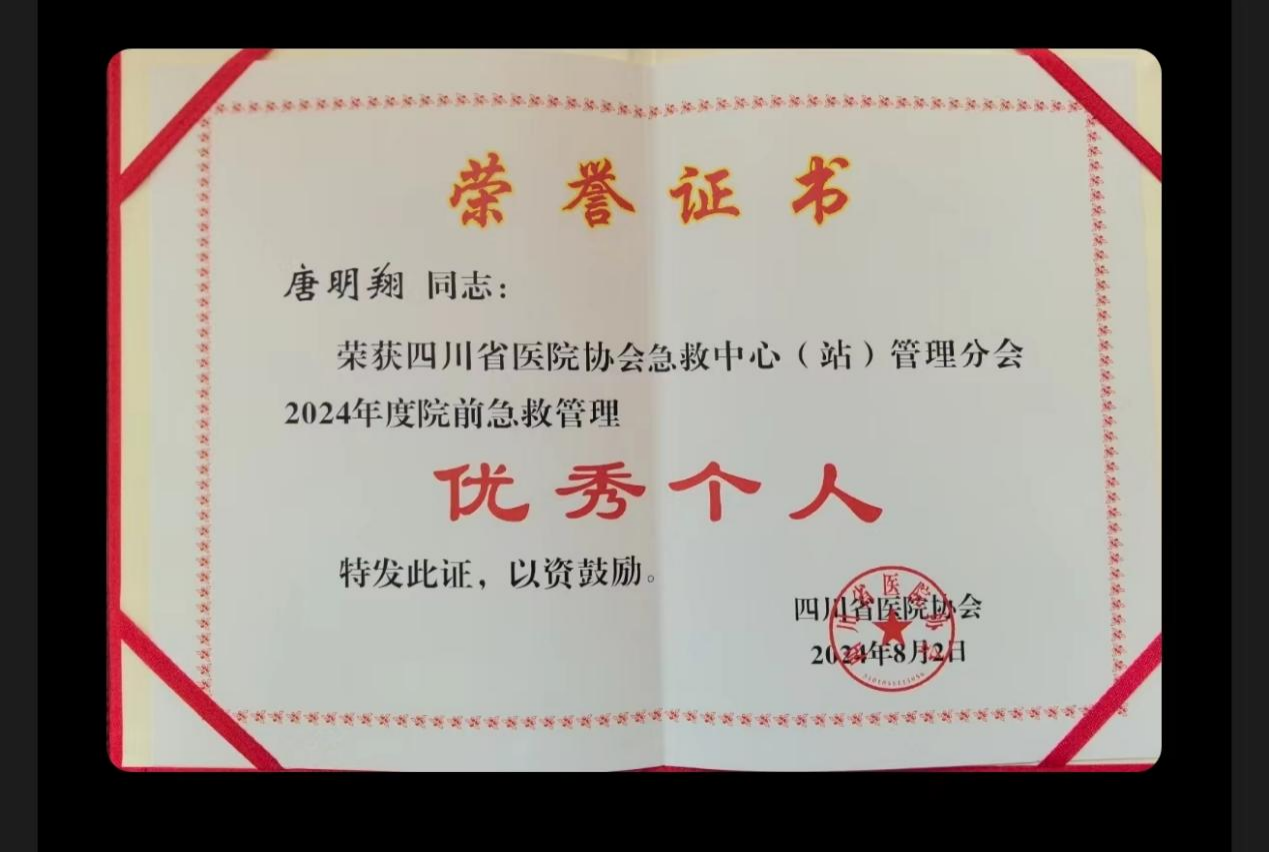 荣誉证书
唐明翔 同志：
荣获四川省医院协会急救中心（站）管理分会
2024年度院前急救管理
优秀个人
特发此证，以资鼓励。
四川省医院协会
2024年8月2日
四川省医院协会